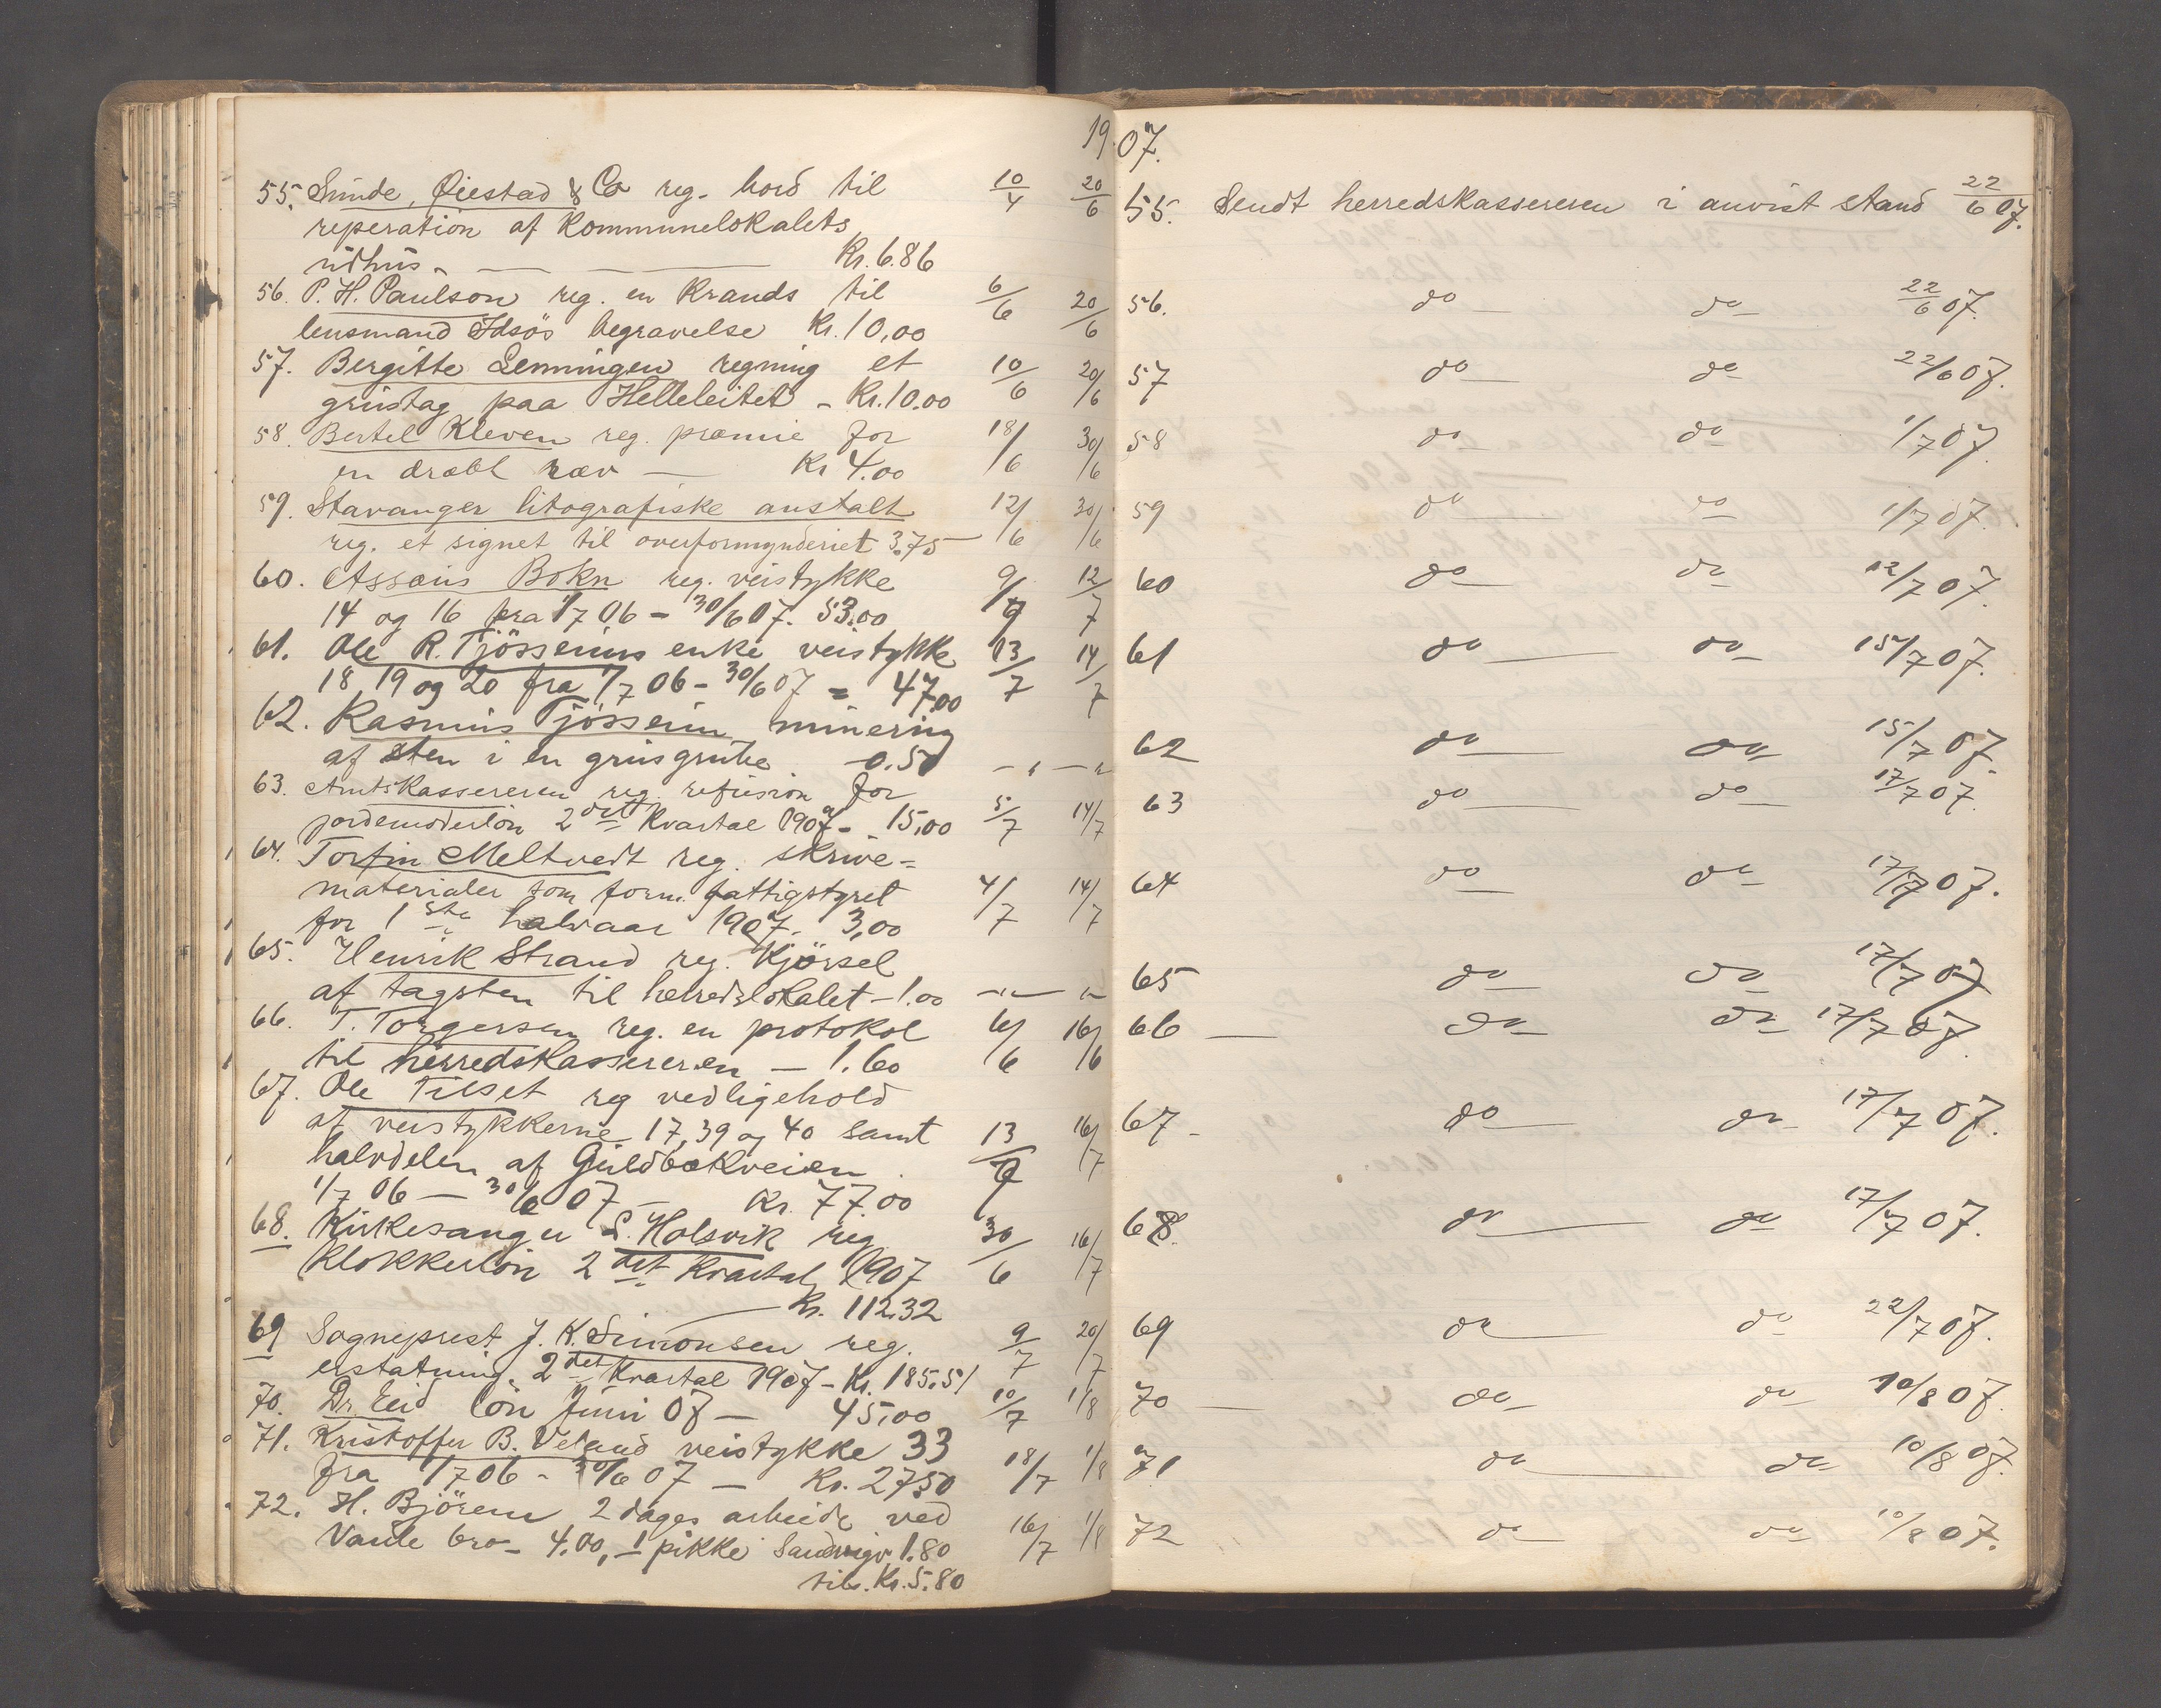 1907.
55. Sunde, Øiestad & Co reg. bord til 10/4 20/6
reperation af Kommunelokalets
udhus. — — Kr. 6.86
56. P. H. Paulson reg. en Krands til 6/6 20/6
lensmand Idsös begravelse Kr. 10,00
57. Bergitte Lenningen regning et 10/6 20/6
grustag paa Helleleitet - Kr. 10.00
58. Bertel Kleven reg. præmie for 18/6 30/6
en dræbt ræv — Kr 4.00
59. Stavanger litografiske anstalt 12/6 30/6
reg. et signet til overformynderiet 3.75
60. Assæus Bokn reg. veistykke 9/7 12/7
14 og 16 fra 1/7 06 - 30/6 07. 53.00
61. Ole R. Tjössems enke veistykke 13/7 14/7
18 19 og 20 fra 1/7 06 - 30/6 07 = 47.00
62. Rasmus Tjössem minering
af sten i en grusgrube 0.50 -"- "
63. Amtskassereren reg. refusion for
jordemoderlön 2det Kvartal 1907 - 15,00 5/7 14/7
64. Torfin Meltvedt reg. skrive=
materialer som form. fattigstyret 4/7 14/7
for 1ste halvaar 1907. 3,00
65. Henrik Strand reg. Kjörsel
af tagsten til herredslokalet - 1.00 -"- "
66. T. Torgersen reg. en protokol 6/6 16/6
til herredskassereren — 1.60
67. Ole Tilset reg vedligehold
af veistykkerne 17, 39 og 40 samt 13/7 16/7
halvdelen af Guldbækveien
1/7 06 — 30/6 07 - Kr. 77.00
68. Kirkesanger S. Holsvik reg 30/6 16/7
Klokkerlön 2det Kvartal 1907
Kr. 112.32
69 Sogneprest J. K. Simonsen reg. 9/7 20/7
erstatning 2det Kvartal 1907 - Kr. 185.51
70. Dr. Eid lön Juni 07 — 45,00 10/7 1/8
71. Kristoffer B. Veland veistykke 33
fra 1/7 06 - 30/6 07 — Kr. 27.50 18/7 1/8
72. H. Björem 2 dages arbeide ved
Vaule bro - 4.00, 1 pikke 1.80 16/7 1/8
tils. Kr. 5.80
55. Sendt herredskassereren i anvist stand 22/6 07.
56. do do 22/6 07.
57 do do 22/6 07.
58 do do 1/7 07.
59 do do 1/7 07.
60 do do 12/7 07.
61 do do 15/7 07.
62 do do 15/7 07.
63 do do 17/7 07.
64 do do 17/7 07.
65 do do 17/7 07
66 do do 17/7 07.
67 - do do 17/7 07.
68. do do 17/7 07.
69 do do 22/7 07.
70 do do 10/8 07.
71 do do 10/8 07.
72 do do 10/8 07.